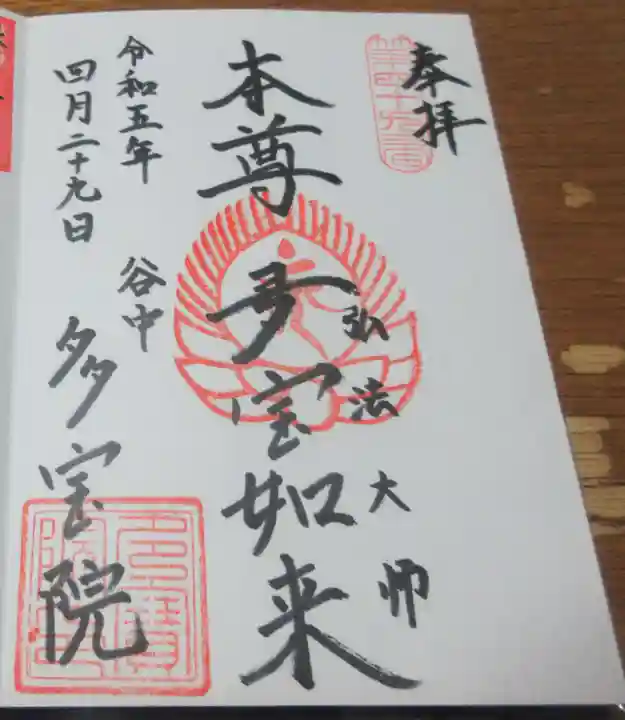 奉拝
第四十九番
本尊 多宝如来
弘法大师
令和五年 谷中
四月二十九日
多宝院